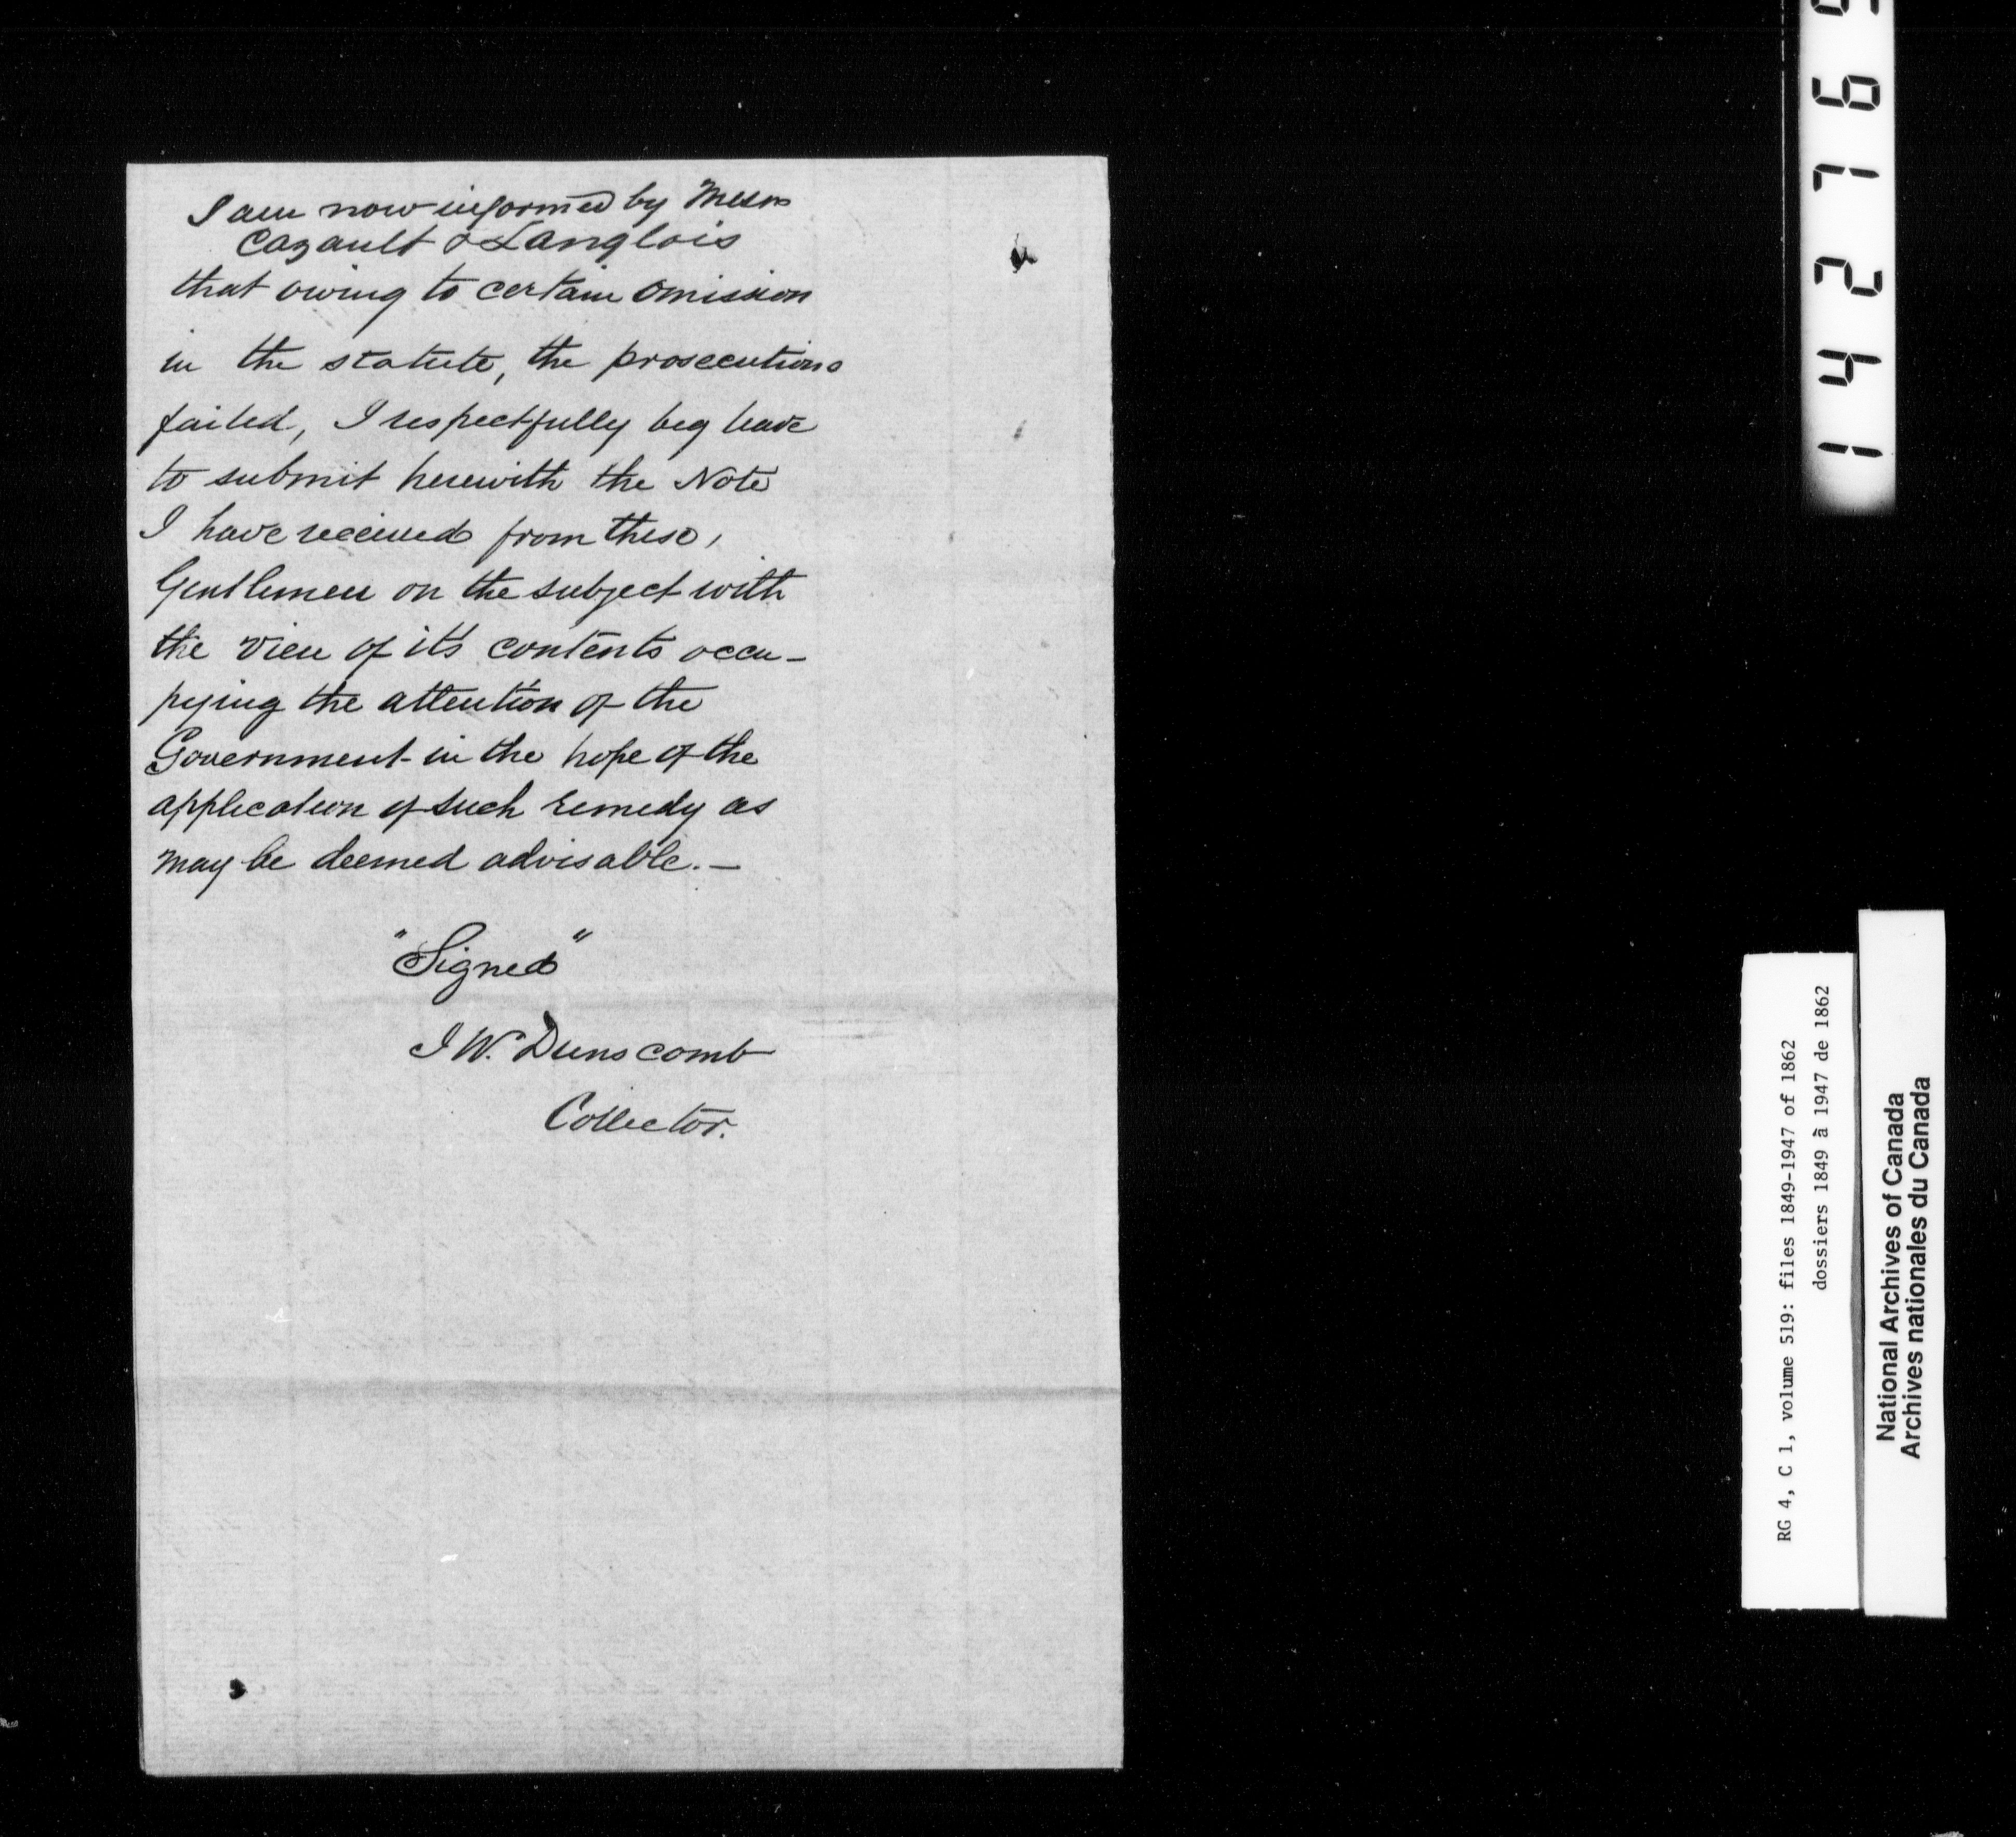 I am now informed by Messrs
Cazault & Langlois
that owing to certain omission
in the statute, the prosecutions
failed, I respectfully beg leave
to submit herewith the Note
I have received from these,
Gentlemen on the subject with
the view of it's contents occu-
pying the attention of the
Government in the hope of the
application of such remedy as
may be deemed advisable. —
"Signed"
J W. Dunscomb
Collector.
142769
RG 4, C 1, volume 519: files 1849-1947 of 1862
dossiers 1849 à 1947 de 1862
National Archives of Canada
Archives nationales du Canada